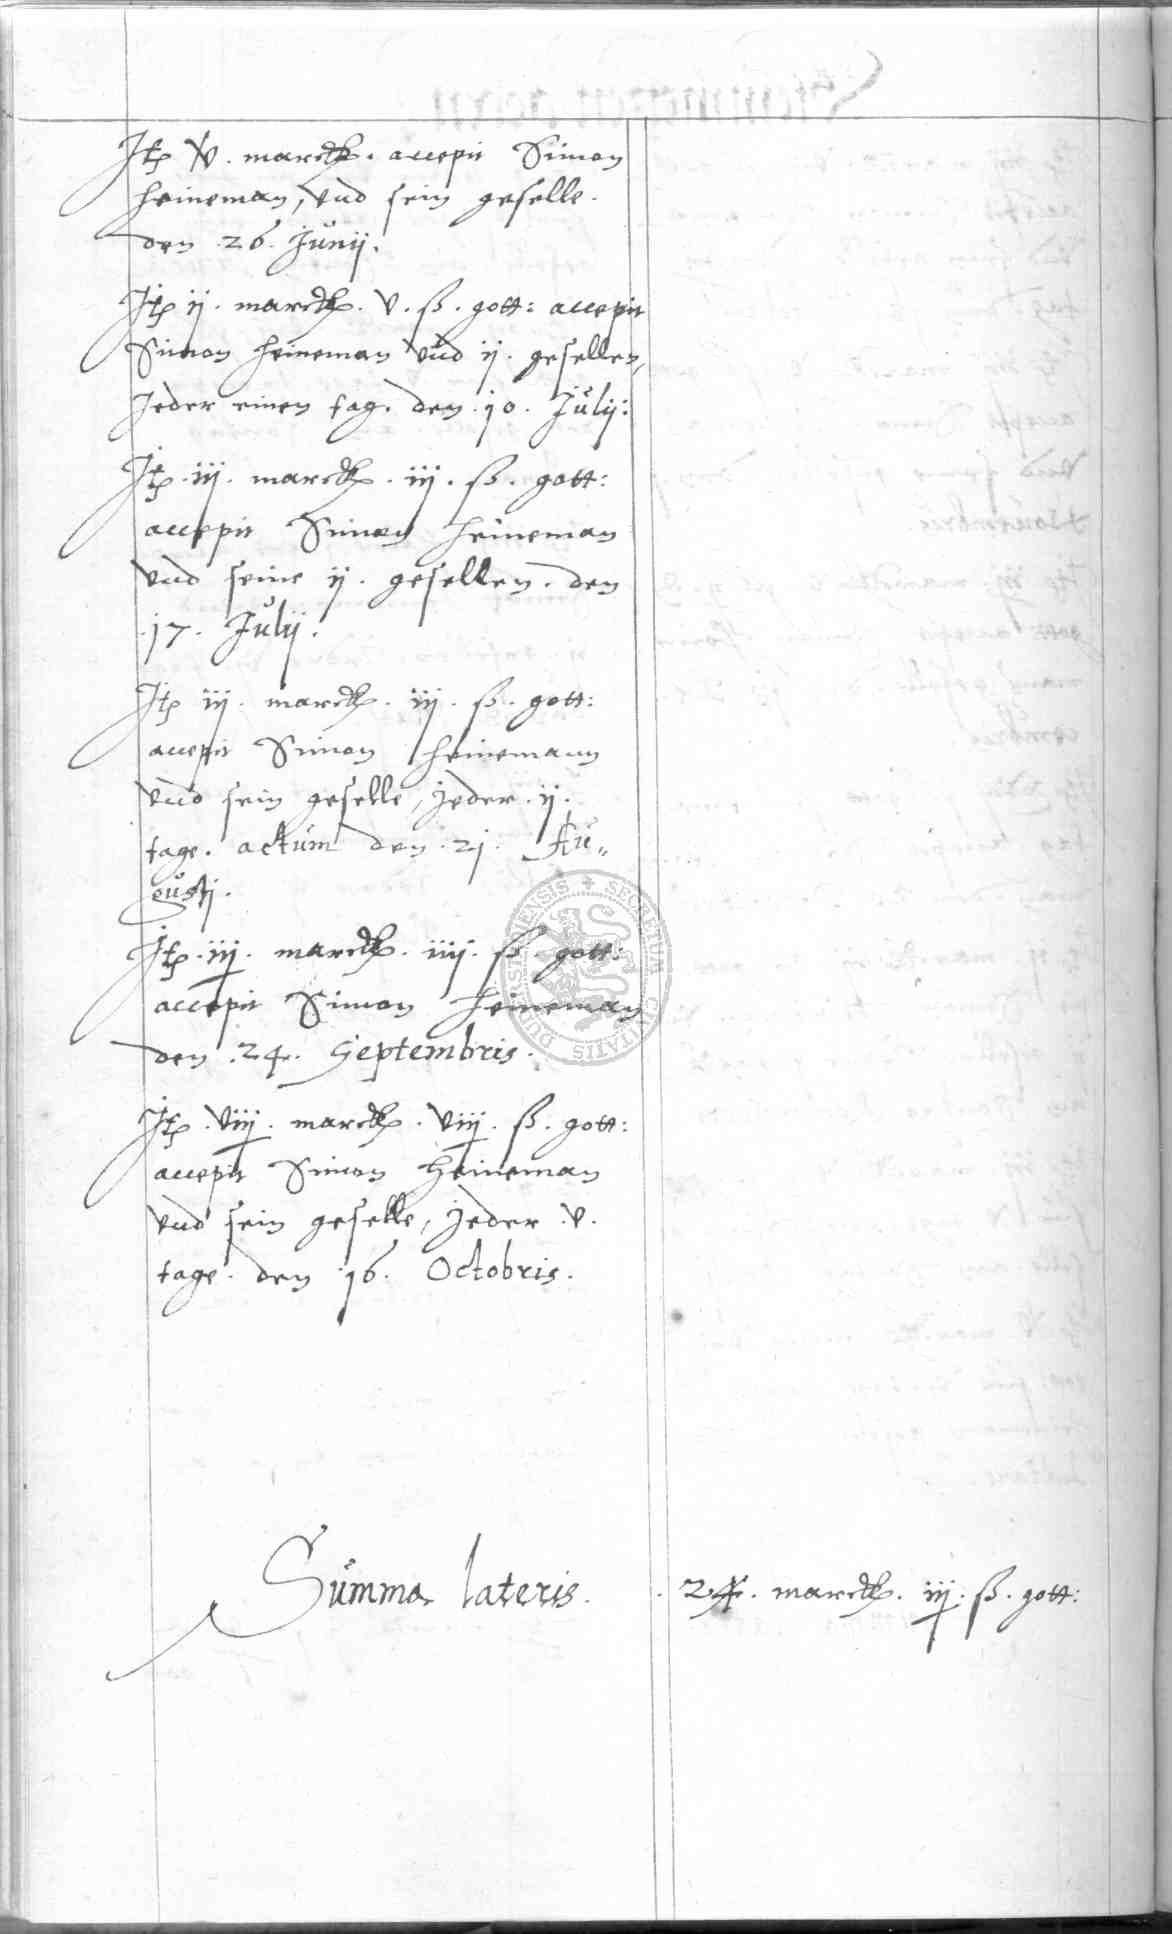 Jtem v. marck. accepit Simon
Heineman, vnd sein geselle.
den 26. Junij.
Jtem ij. marck. v. ß. gott: accepit
Simon Heineman vnd ij. gesellen,
Jeder einen tag. den 10. Julij:
Jtem iij. marck. iij. ß. gott:
accepit Simon Heineman
vnd seine ij. gesellen. den
17. Julij.
Jtem iij. marck. iij. ß. gott:
accepit Simon Heinemann
vnd sein geselle, Jeder ij.
tage. actum den 21. Au„
gustj.
Jtem iij. marck. iiij. ß. gott:
accepit Simon Heineman
den 24. Septembris.
Jtem viij. marck. viij. ß. gott:
accepit Simon Heineman
vnd sein geselle, Jeder v.
tage. den 16. Octobris.
SECRETUM CIVITATIS DUDERSTADENSIS
Summa lateris. 24. marck. iij. ß. gott: